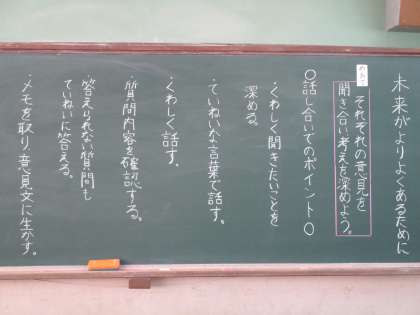 未来がよりよくあるために
めあて
それぞれの意見を
聞き合い考えを深めよう。
○話し合いでのポイント○
・くわしく聞きたいことを
深める。
・ていねいな言葉で話す。
・くわしく話す。
・質問内容を確認する。
・答えられない質問も
ていねいに答える。
・メモを取り、意見文に生かす。